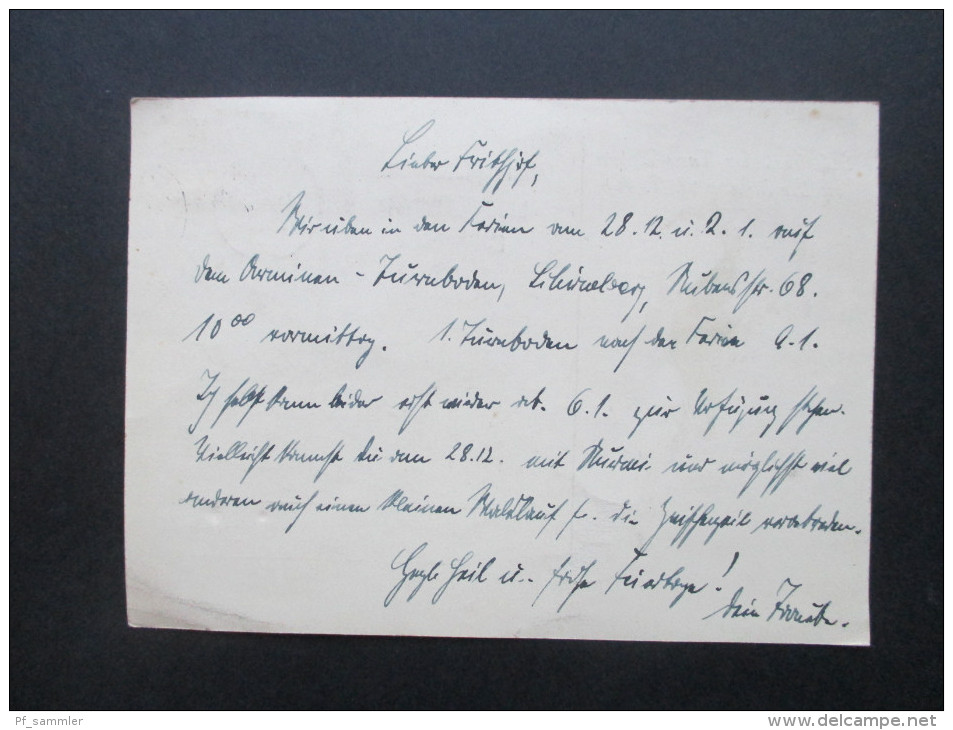 Lieber Frithjof,
Wir üben in den Ferien am 28.12. u. 2.1. auf
dem Arminen-Turnboden, Schöneberg, Rubensstr. 68.
10⁰⁰ vormittag. 1. Turnboden nach den Ferien 9.1.
Ich selbst kann leider erst wieder ab. 6.1. zur Verfügung stehen.
Vielleicht kannst Du am 28.12. mit und möglichst viel
anderen auch einen kleinen Waldlauf f. die Zwischenzeit verabreden.
Heil u. frohe Feiertage!
Dein
Pf_sammler
www.delcampe.net